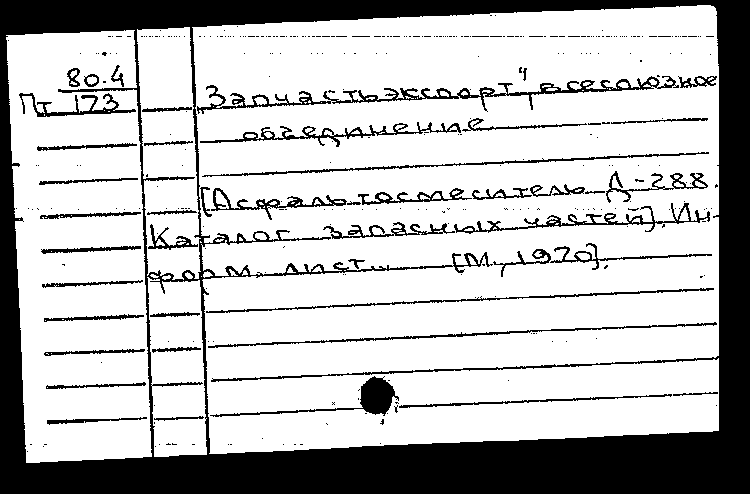 80.4
Пт 173
Запчастьэкспорт", всесоюзное
объединение
[Асфальтосмеситель Д-288.
Каталог запасных частей]. Ин-
форм. лист. [М., 1970].